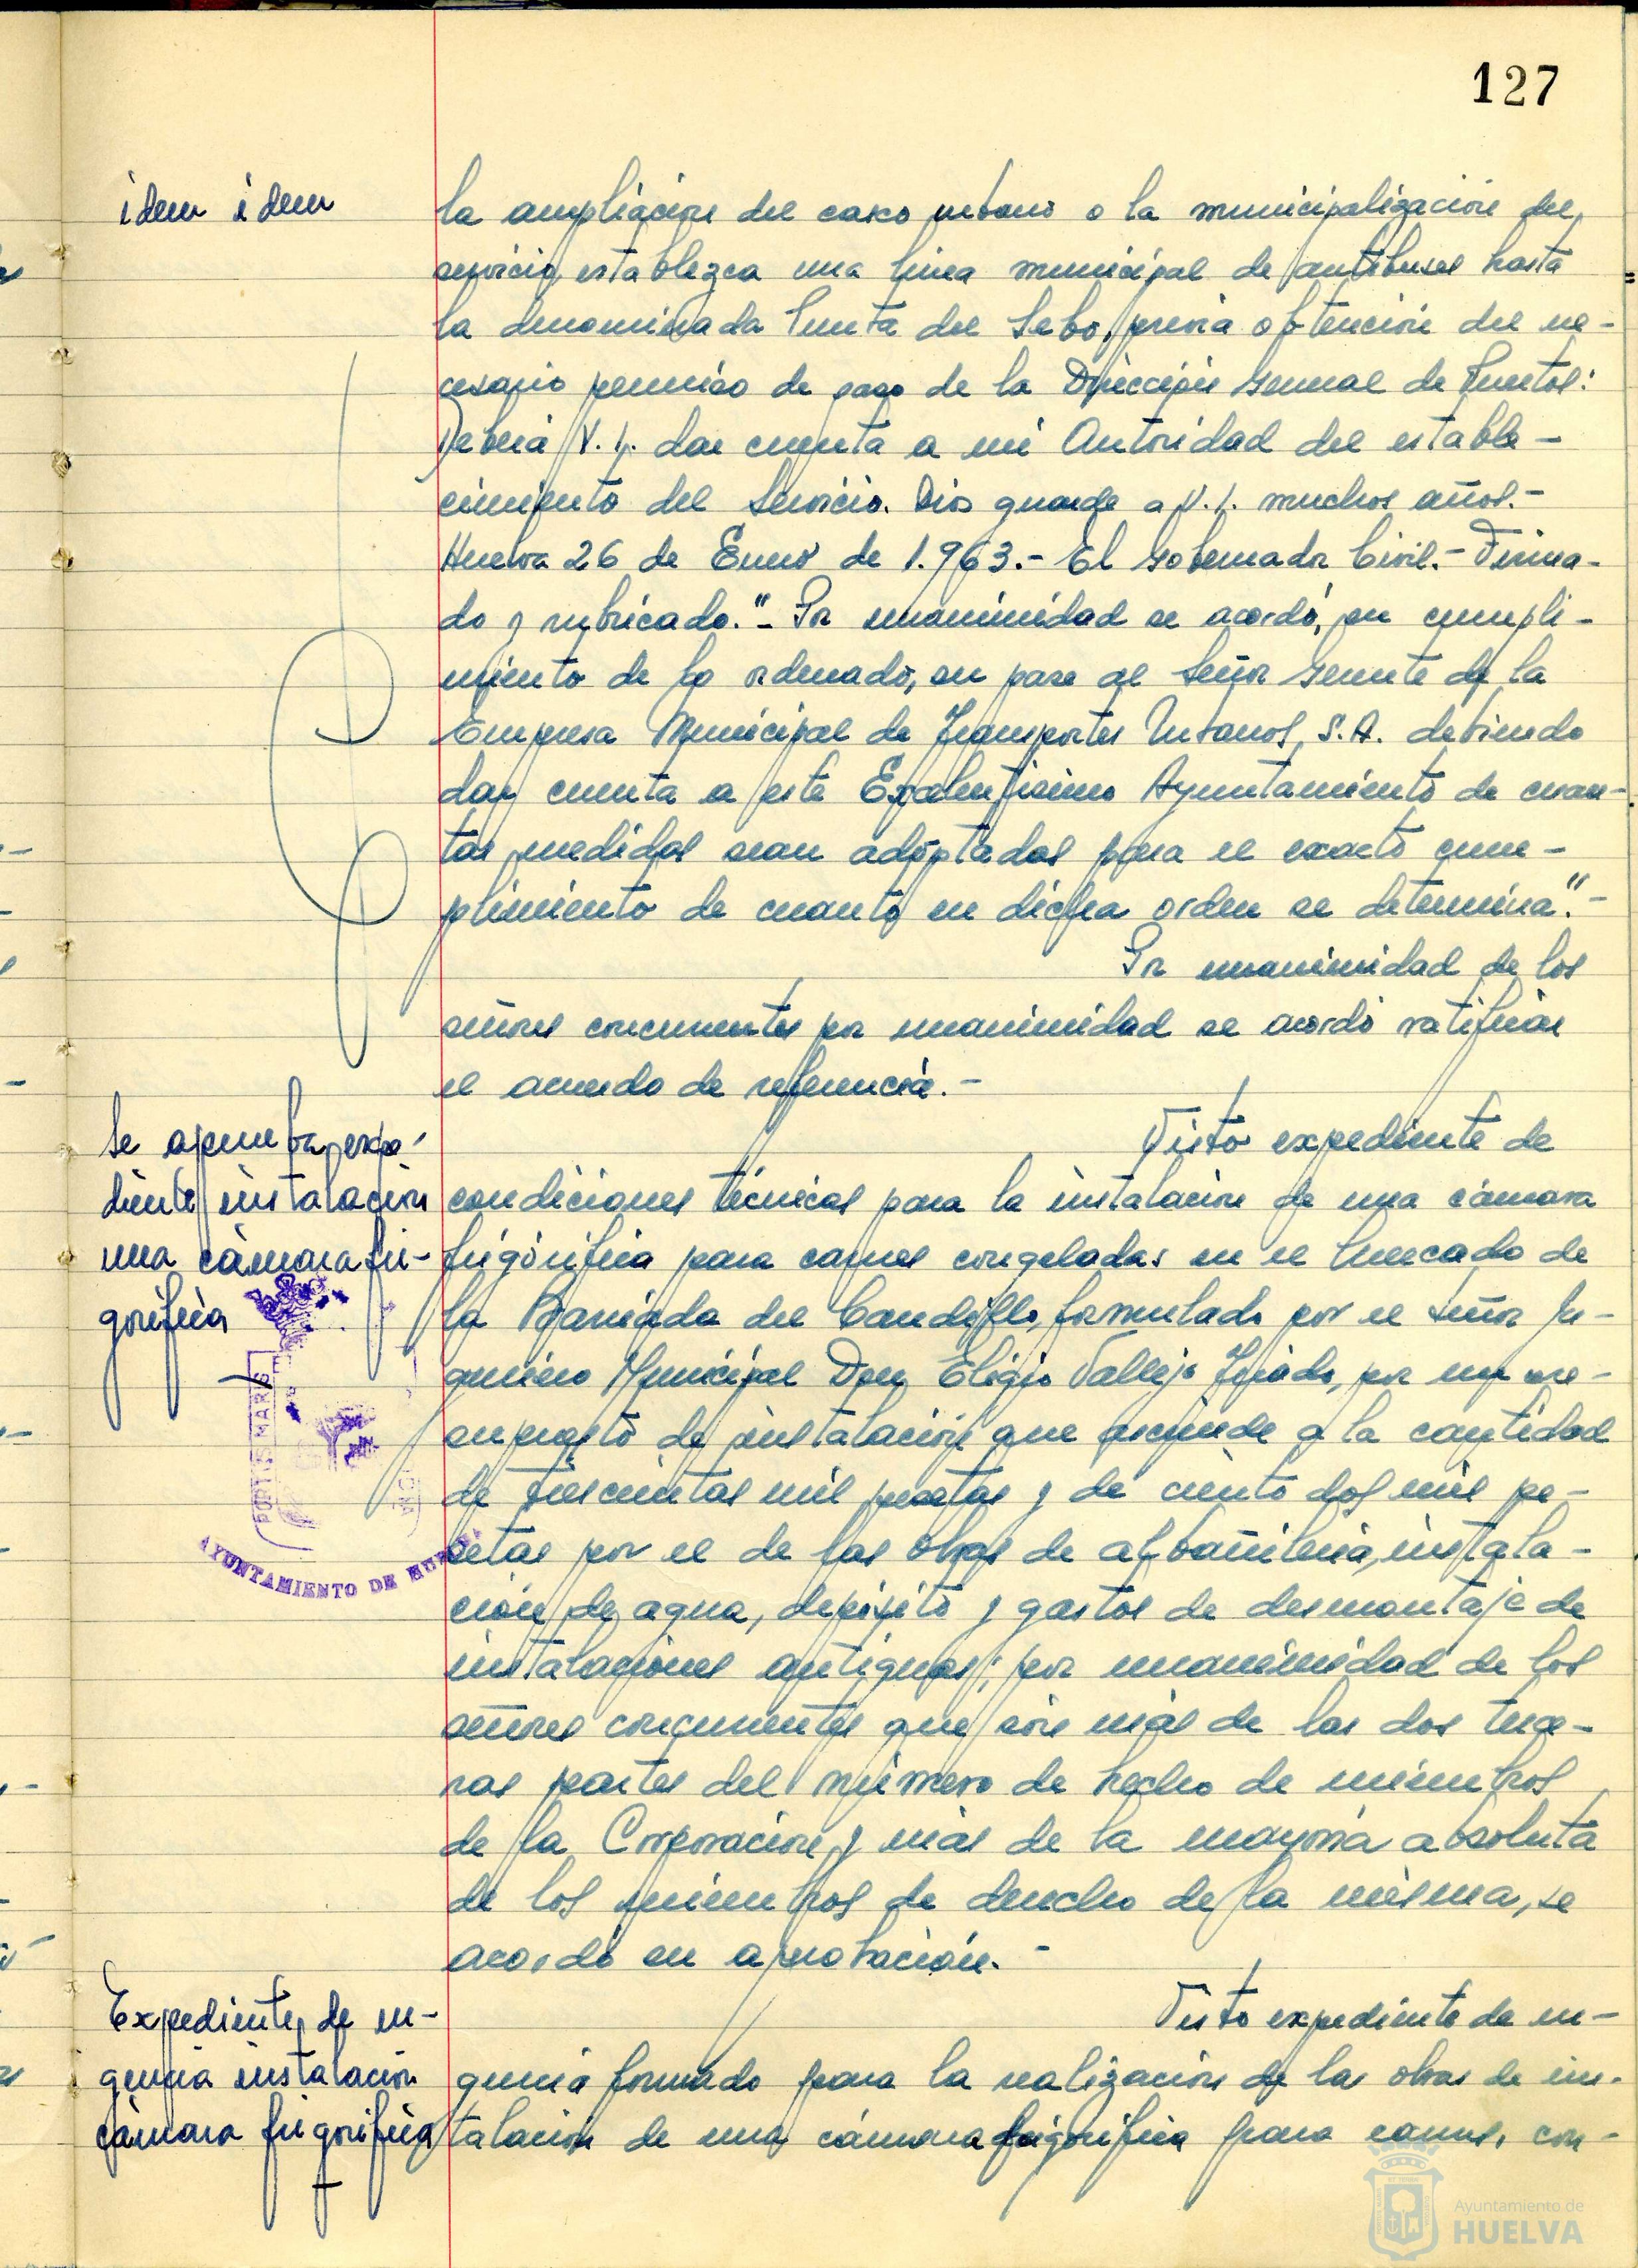 127
idem idem
la ampliación del casco urbano o la municipalización del
servicio, establezca una línea municipal de autobuses hasta
la denominada Punta del Sebo, previa obtención del ne-
cesario permiso de paso de la Dirección General de Puertos:
Deberá V.I. dar cuenta a mi Autoridad del estable-
cimiento del servicio. Dios guarde a V.I. muchos años.-
Huelva 26 de Enero de 1.963.- El Gobernador Civil.- Firma-
do y rubricado."- Por unanimidad se acordó, en cumpli-
miento de lo ordenado, su pase al Señor Gerente de la
Empresa Municipal de Transportes Urbanos, S.A. debiendo
dar cuenta a este Excelentísimo Ayuntamiento de cuan-
tas medidas sean adoptadas para el exacto cum-
plimiento de cuanto en dicha orden se determina".-
Por unanimidad de los
señores concurrentes por unanimidad se acordó ratificar
el acuerdo de referencia.-
Se aprueba expe-
diente instalación
una cámara fri-
gorífica
Visto expediente de
condiciones técnicas para la instalación de una cámara
frigorífica para carnes congeladas en el Mercado de
la Barriada del Caudillo, formulado por el señor In-
geniero Municipal Don Eligio Vallejo Tejado, por un pre-
supuesto de instalación que asciende a la cantidad
de trescientas mil pesetas y de ciento dos mil pe-
setas por el de las obras de albañilería, instala-
ción de agua, depósito y gastos de desmontaje de
instalaciones antiguas; por unanimidad de los
señores concurrentes que son más de las dos terce-
ras partes del número de hecho de miembros
de la Corporación y más de la mayoría absoluta
de los miembros de derecho de la misma, se
acordó su aprobación.-
PORTUS MARIS
AYUNTAMIENTO DE HUELVA
Expediente de ur-
gencia instalación
cámara frigorífica
Visto expediente de ur-
gencia formado para la realización de las obras de ins-
talación de una cámara frigorífica para carnes con-
Ayuntamiento de
HUELVA